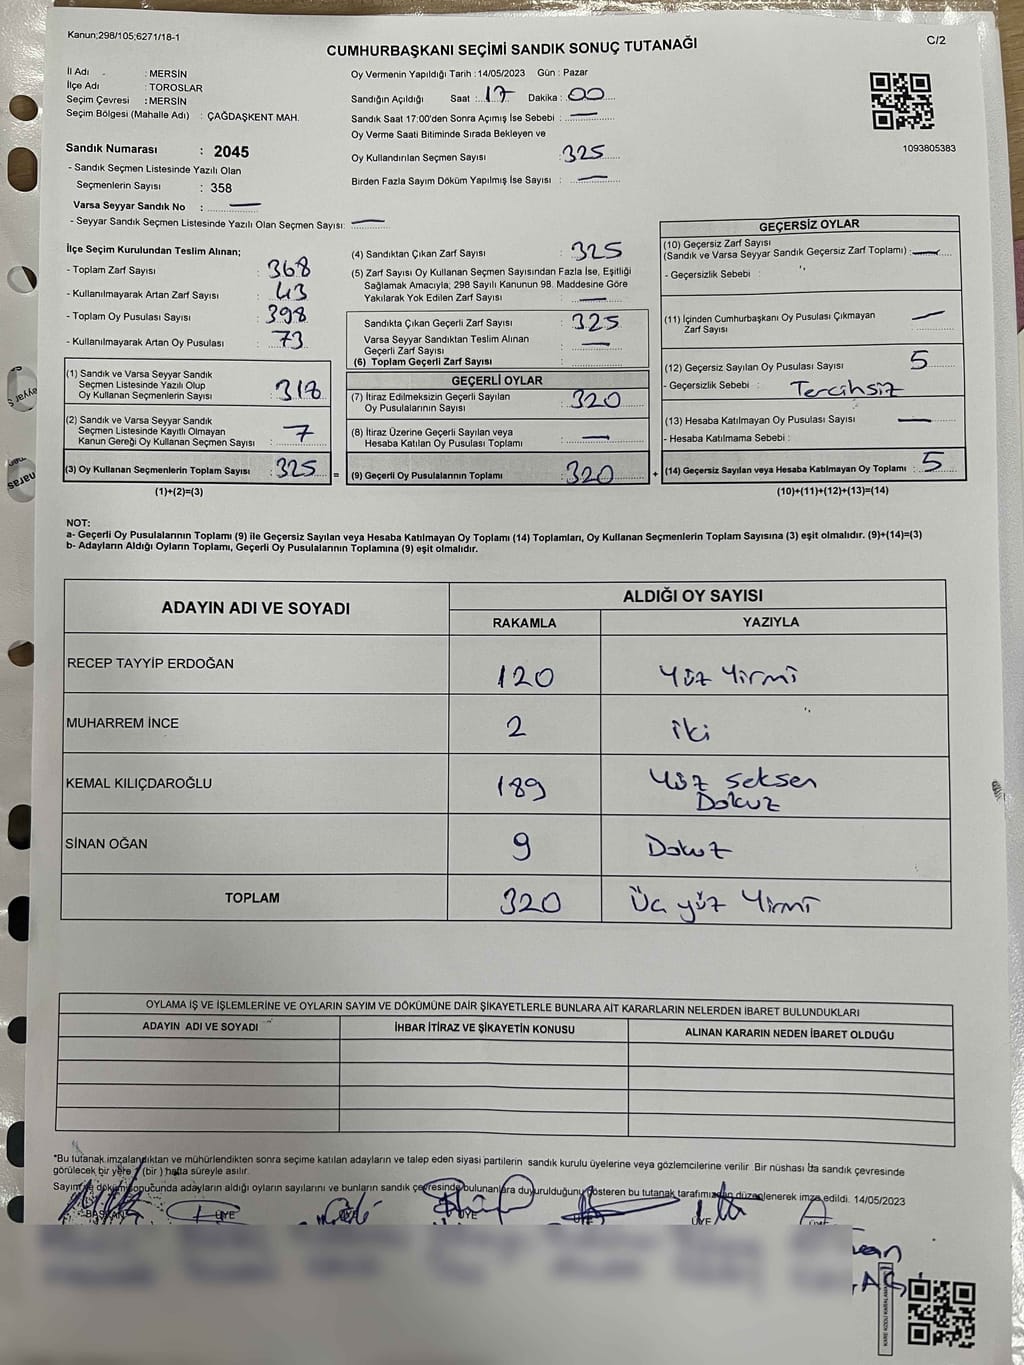 Kanun;298/105;6271/18-1
C/2
CUMHURBAŞKANI SEÇİMİ SANDIK SONUÇ TUTANAĞI
İl Adı : MERSİN
İlçe Adı : TOROSLAR
Seçim Çevresi : MERSİN
Seçim Bölgesi (Mahalle Adı) : ÇAĞDAŞKENT MAH.
Sandık Numarası : 2045
- Sandık Seçmen Listesinde Yazılı Olan
Seçmenlerin Sayısı : 358
Varsa Seyyar Sandık No : —
- Seyyar Sandık Seçmen Listesinde Yazılı Olan Seçmen Sayısı: —
Oy Vermenin Yapıldığı Tarih : 14/05/2023 Gün : Pazar
Sandığın Açıldığı Saat : 17 Dakika : 00
Sandık Saat 17:00'den Sonra Açımış İse Sebebi : —
Oy Verme Saati Bitiminde Sırada Bekleyen ve
Oy Kullandırılan Seçmen Sayısı 325
Birden Fazla Sayım Döküm Yapılmış İse Sayısı : —
1093805383
İlçe Seçim Kurulundan Teslim Alınan;
- Toplam Zarf Sayısı : 368
- Kullanılmayarak Artan Zarf Sayısı : 43
- Toplam Oy Pusulası Sayısı : 398
- Kullanılmayarak Artan Oy Pusulası : 73
(1) Sandık ve Varsa Seyyar Sandık
Seçmen Listesinde Yazılı Olup
Oy Kullanan Seçmenlerin Sayısı : 318
(2) Sandık ve Varsa Seyyar Sandık
Seçmen Listesinde Kayıtlı Olmayan
Kanun Gereği Oy Kullanan Seçmen Sayısı : 7
(3) Oy Kullanan Seçmenlerin Toplam Sayısı : 325 =
(1)+(2)=(3)
(4) Sandıktan Çıkan Zarf Sayısı : 325
(5) Zarf Sayısı Oy Kullanan Seçmen Sayısından Fazla İse, Eşitliği
Sağlamak Amacıyla; 298 Sayılı Kanunun 98. Maddesine Göre
Yakılarak Yok Edilen Zarf Sayısı : —
Sandıkta Çıkan Geçerli Zarf Sayısı : 325
Varsa Seyyar Sandıktan Teslim Alınan
Geçerli Zarf Sayısı : —
(6) Toplam Geçerli Zarf Sayısı :
GEÇERLİ OYLAR
(7) İtiraz Edilmeksizin Geçerli Sayılan
Oy Pusulalarının Sayısı : 320
(8) İtiraz Üzerine Geçerli Sayılan veya
Hesaba Katılan Oy Pusulası Toplamı : —
(9) Geçerli Oy Pusulalarının Toplamı : 320 +
GEÇERSİZ OYLAR
(10) Geçersiz Zarf Sayısı
(Sandık ve Varsa Seyyar Sandık Geçersiz Zarf Toplamı) : —
- Geçersizlik Sebebi :
(11) İçinden Cumhurbaşkanı Oy Pusulası Çıkmayan
Zarf Sayısı : —
(12) Geçersiz Sayılan Oy Pusulası Sayısı : 5
- Geçersizlik Sebebi : Tercihsiz
(13) Hesaba Katılmayan Oy Pusulası Sayısı : —
- Hesaba Katılmama Sebebi :
(14) Geçersiz Sayılan veya Hesaba Katılmayan Oy Toplamı : 5
(10)+(11)+(12)+(13)=(14)
NOT:
a- Geçerli Oy Pusulalarının Toplamı (9) ile Geçersiz Sayılan veya Hesaba Katılmayan Oy Toplamı (14) Toplamları, Oy Kullanan Seçmenlerin Toplam Sayısına (3) eşit olmalıdır. (9)+(14)=(3)
b- Adayların Aldığı Oyların Toplamı, Geçerli Oy Pusulalarının Toplamına (9) eşit olmalıdır.
ADAYIN ADI VE SOYADI ALDIĞI OY SAYISI
RAKAMLA YAZIYLA
RECEP TAYYİP ERDOĞAN 120 Yüz Yirmi
MUHARREM İNCE 2 iki
KEMAL KILIÇDAROĞLU 189 Yüz Seksen
Dokuz
SİNAN OĞAN 9 Dokuz
TOPLAM 320 Üç yüz Yirmi
OYLAMA İŞ VE İŞLEMLERİNE VE OYLARIN SAYIM VE DÖKÜMÜNE DAİR ŞİKAYETLERLE BUNLARA AİT KARARLARIN NELERDEN İBARET BULUNDUKLARI
ADAYIN ADI VE SOYADI İHBAR İTİRAZ VE ŞİKAYETİN KONUSU ALINAN KARARIN NEDEN İBARET OLDUĞU
*Bu tutanak imzalandıktan ve mühürlendikten sonra seçime katılan adayların ve talep eden siyasi partilerin sandık kurulu üyelerine veya gözlemcilerine verilir. Bir nüshası da sandık çevresinde
görülecek bir yere 7 (bir) hafta süreyle asılır.
Sayım ve döküm sonucunda adayların aldığı oyların sayılarını ve bunların sandık çevresinde bulunanlara duyurulduğunu gösteren bu tutanak tarafımızdan düzenlenerek imza edildi. 14/05/2023
BAŞKAN ÜYE ÜYE ÜYE ÜYE ÜYE ÜYE